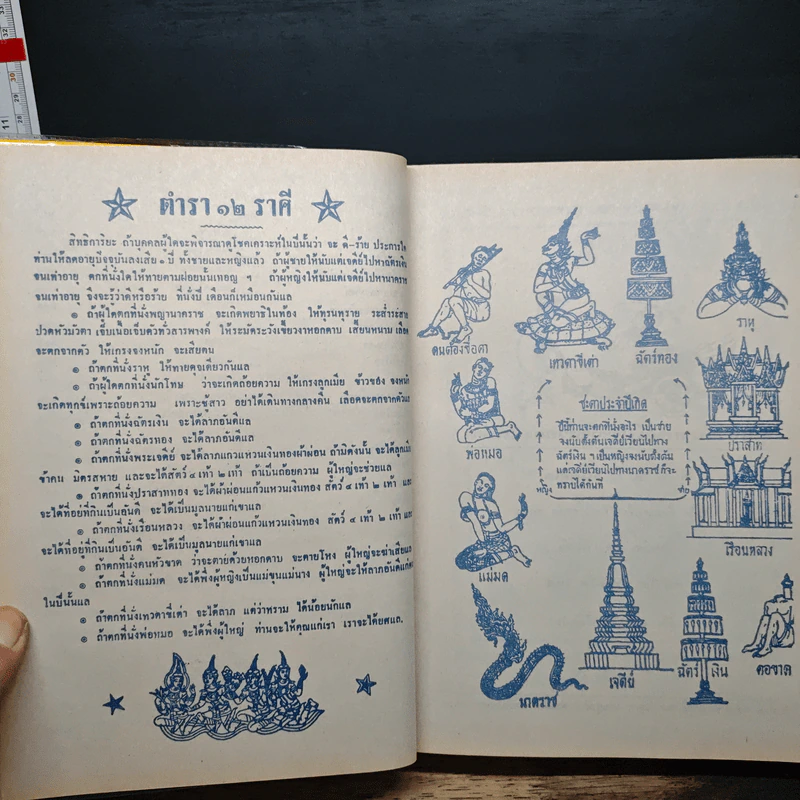 ตำรา ๑๒ ราศี
สิทธิการิยะ ถ้าบุคคลผู้ใดจะพิจารณาดูโชคเคราะห์ในปีนั้นว่า จะ ดี-ร้าย ประการใด
ท่านให้ลดอายุปัจจุบันลงเสีย ๑ ปี ทั้งชายและหญิงแล้ว ถ้าผู้ชายให้นับแต่เจดีย์ไปหาฉัตรเงิน
จนเท่าอายุ ตกที่นั่งใดให้ทายตามผ่อยนั้นเทอญ ฯ ถ้าผู้หญิงให้นับแต่เจดีย์ไปหานาคราช
จนเท่าอายุ จึงจะรู้ว่าดีหรือร้าย ที่นั่งปี เดือนก็เหมือนกันแล
๏ ถ้าผู้ใดตกที่นั่งพญานาคราช จะเกิดพยาธิในท้อง ให้หุรนทุราย ระส่ำระสาย
ปวดหัวมัวตา เจ็บเนื้อเจ็บตัวทั่วสารพางค์ ให้ระมัดระวังเขี้ยวงาหอกดาบ เสี้ยนหนาม เลือด
จะตกจากตัว ให้เกรงจงหนัก จะเสียคน
๏ ถ้าตกที่นั่งราหู ให้ทายดุจเดียวกันแล
๏ ถ้าผู้ใดตกที่นั่งนักโทษ ว่าจะเกิดถ้อยความ ให้เกรงลูกเมีย ข้าวของ จงหนัก
จะเกิดทุกข์เพราะถ้อยความ เพราะชู้สาว อย่าได้เดินทางกลางคืน เลือดจะตกจากตัวแล
๏ ถ้าตกที่นั่งฉัตรเงิน จะได้ลาภอันดีแล
๏ ถ้าตกที่นั่งฉัตรทอง จะได้ลาภอันดีแล
๏ ถ้าตกที่นั่งพระเจดีย์ จะได้ลาภแก้วแหวนเงินทองผ้าผ่อน ถ้ามิดังนั้น จะได้ลูกเมีย
ข้าคน มิตรสหาย และจะได้สัตว์ ๔ เท้า ๒ เท้า ถ้าเป็นถ้อยความ ผู้ใหญ่จะช่วยแล
๏ ถ้าตกที่นั่งปราสาททอง จะได้ผ้าผ่อนแก้วแหวนเงินทอง สัตว์ ๔ เท้า ๒ เท้า และ
จะได้ที่อยู่ที่กินเป็นอันดี จะได้เป็นมูลนายแก่เขาแล
๏ ถ้าตกที่นั่งเรือนหลวง จะได้ผ้าผ่อนแก้วแหวนเงินทอง สัตว์ ๔ เท้า ๒ เท้า และ
จะได้ที่อยู่ที่กินเป็นอันดี จะได้เป็นมูลนายแก่เขาแล
๏ ถ้าตกที่นั่งคนหัวขาด ว่าจะตายด้วยหอกดาบ จะตายโหง ผู้ใหญ่จะฆ่าเสียแล
๏ ถ้าตกที่นั่งแม่มด จะได้พึ่งผู้หญิงเป็นแม่ขุนแม่นาง ผู้ใหญ่จะให้ลาภอันดีแก่ตน
ในปีนั้นแล
๏ ถ้าตกที่นั่งเทวดาขี่เต่า จะได้ลาภ แต่ว่าทราม ได้น้อยนักแล
๏ ถ้าตกที่นั่งพ่อหมอ จะได้พึ่งผู้ใหญ่ ท่านจะให้คุณแก่เรา เราจะได้ยศแล.
คนต้องขื่อคา
เทวดาขี่เต่า
ฉัตร์ทอง
ราหู
พ่อหมอ
ชะตาประจำปีเกิด
ปีนี้ท่านจะตกที่นั่งอะไร เป็นชาย
จงนับตั้งต้นเจดีย์เวียนไปทาง
ฉัตร์เงิน ฯ เป็นหญิงจงนับตั้งต้น
แต่เจดีย์เวียนไปทางนาคราชก็จะ
ทราบได้ทันที
หญิง
ชาย
ปราสาท
แม่มด
เรือนหลวง
นาคราช
เจดีย์
ฉัตร์เงิน
คอขาด